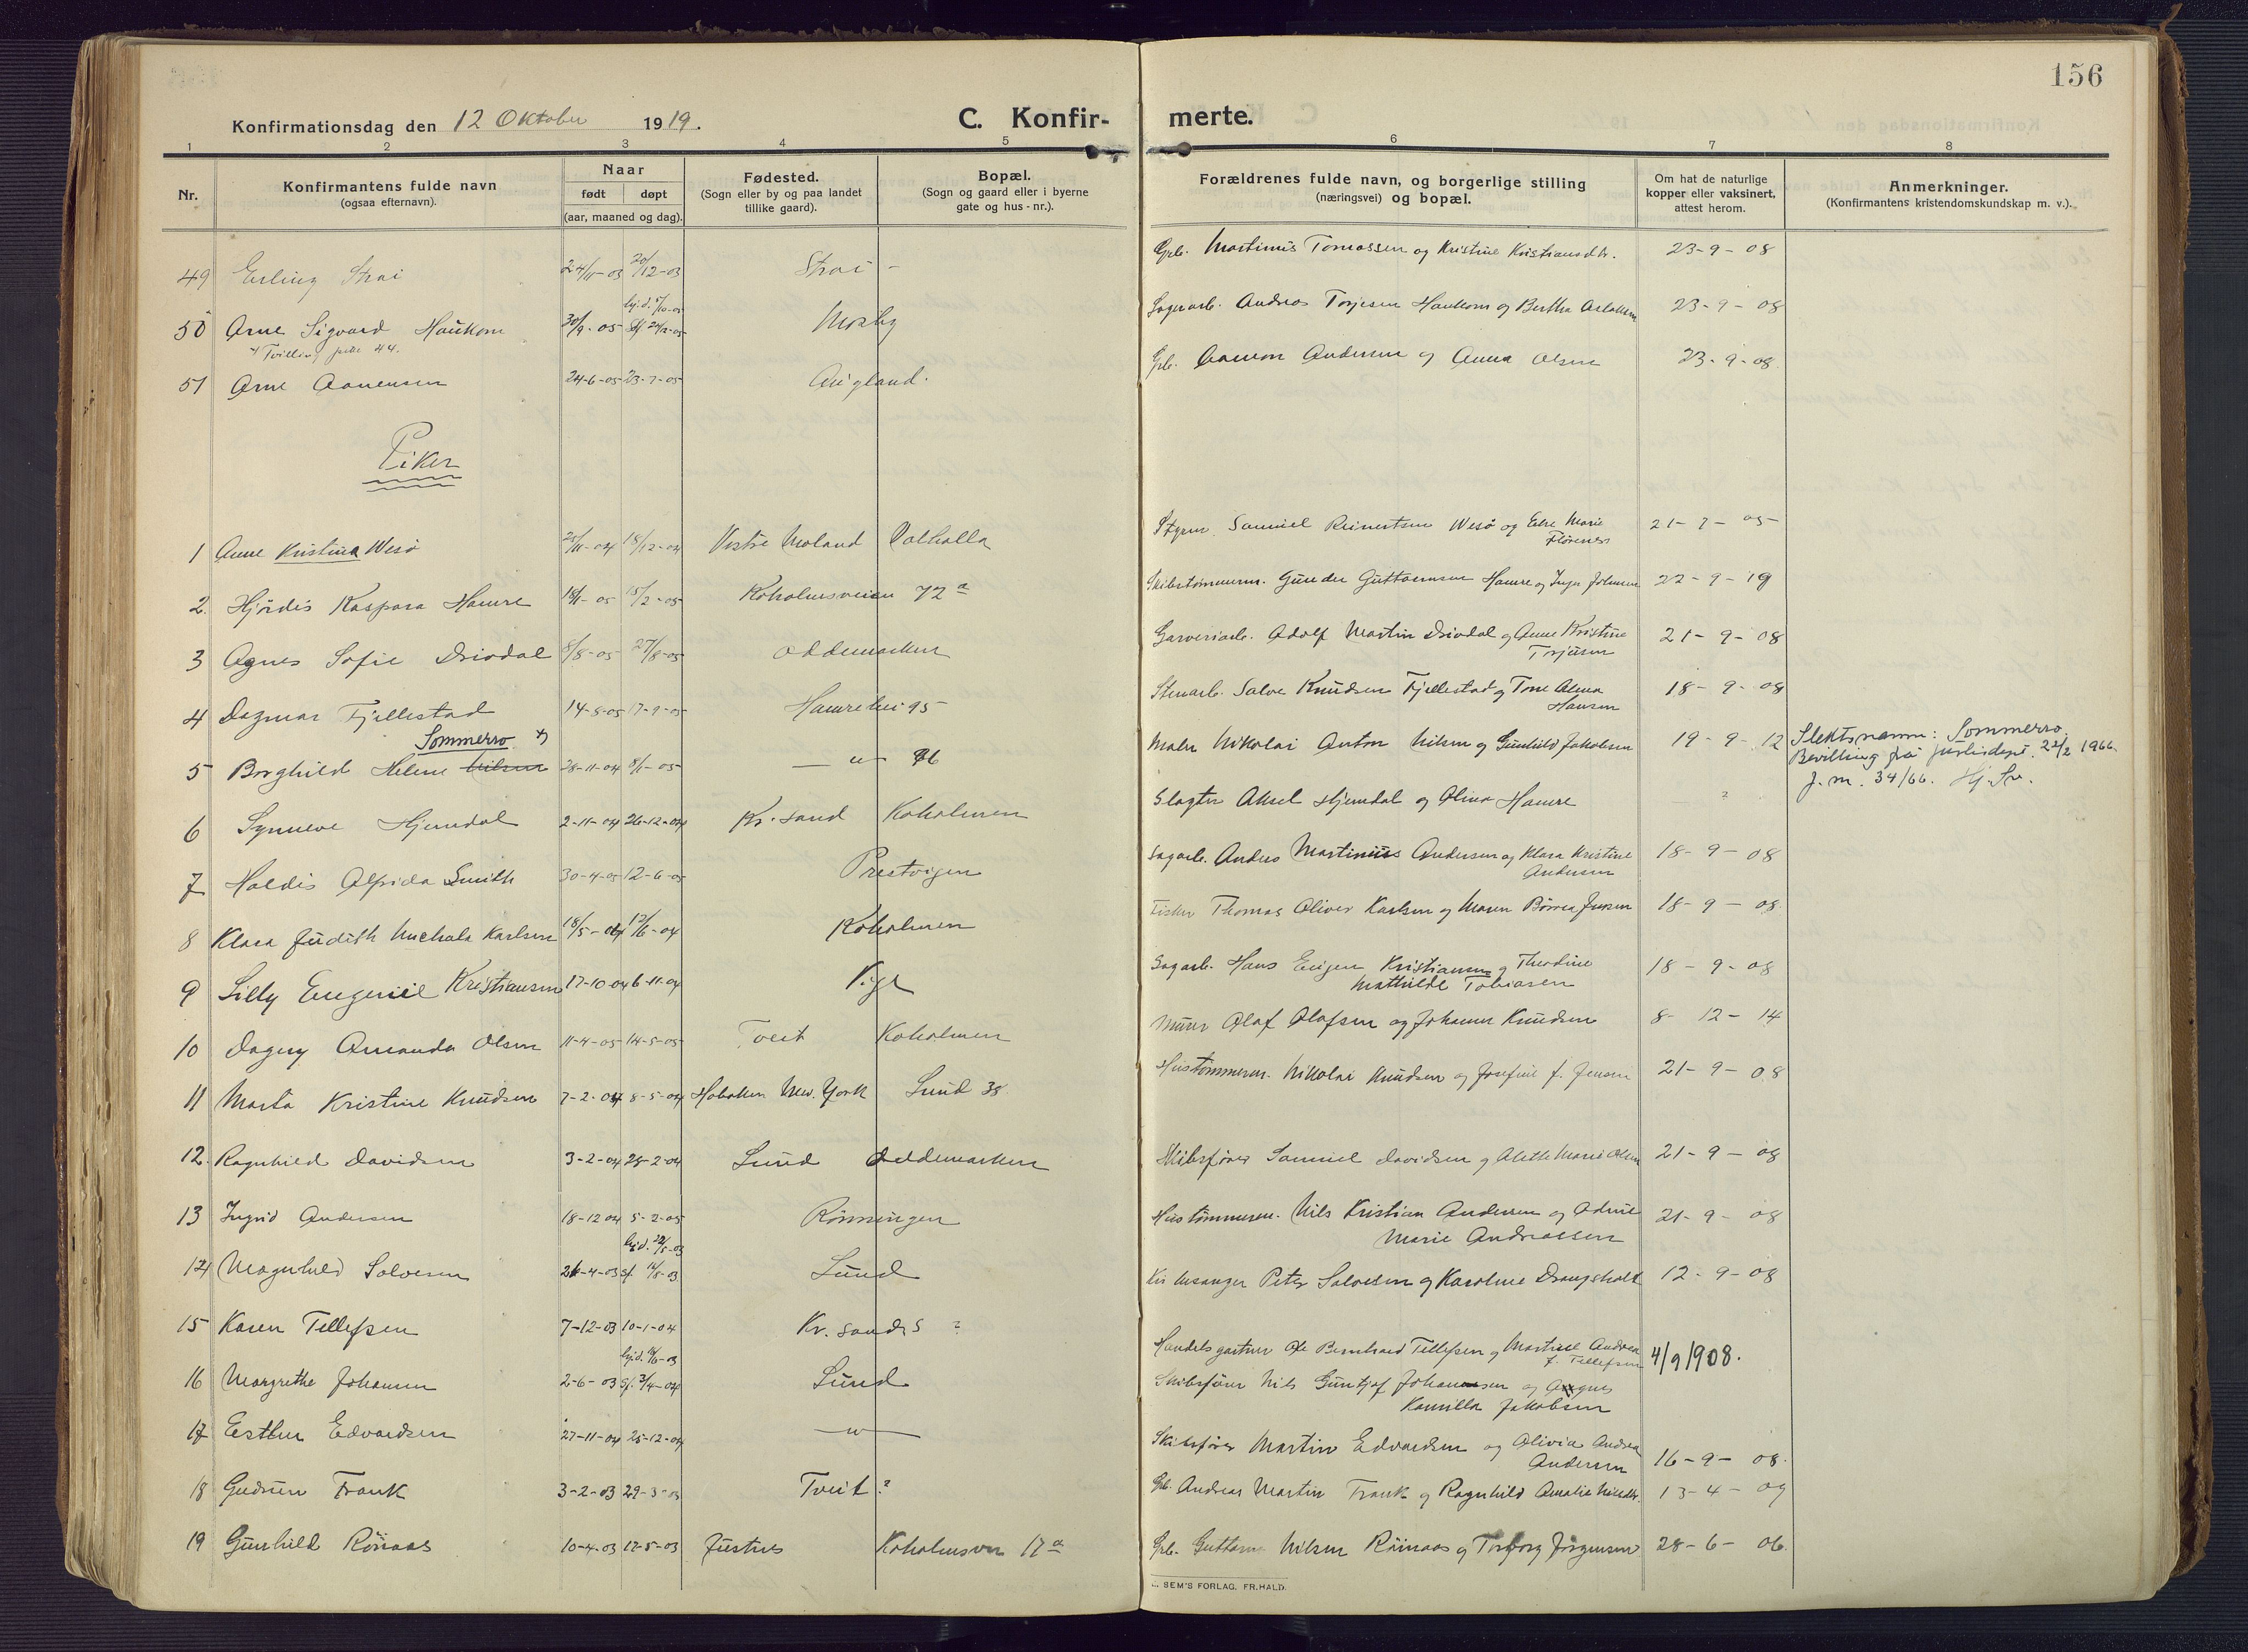 156
Konfirmationsdag den 12 Oktober 1919.
C. Konfir- merte.
1 2 3 4 5 6 7 8
Nr.
Konfirmantens fulde navn
(ogsaa efternavn).
Naar
født døpt
(aar, maaned og dag).
Fødested.
(Sogn eller by og paa landet
tillike gaard).
Bopæl.
(Sogn og gaard eller i byerne
gate og hus-nr.).
Forældrenes fulde navn, og borgerlige stilling
(næringsvei) og bopæl.
Om hat de naturlige
kopper eller vaksinert,
attest herom.
Anmerkninger.
(Konfirmantens kristendomskundskap m. v.).
49 Erling Strai 24/11-03 20/12-03 Strai - Grb. Martinus Tomassen og Kristine Kristiansdtr. 23-9-08
hj.d.
50 Arne Sigvard Haukom 30/9-05 Mosby Sagarb. Andreas Torjesen Haukom og Bertha Aslaksen 23-9-08
51 Arne Aanensen 24-6-05 23-7-05 Augland. Grb. Aanon Andersen og Anna Olsen 23-9-08
Piker
1 Anne Kristina Wesö 18/12-04 Vestre Moland Valhalla Styrm. Samuel Reinertsen Wesö og Else Marie
Florenes
2 Hjördis Kaspara Hamre 18/1-05 15/2-05 Koholmsveien 72a Skibstömmerm. Gunder Guttormsen Hamre og Inger Johnsen 22-9-19
3 Agnes Sofie Drivdal 8/8-05 27/8-05 Oddemarken Garveriarb. Adolf Martin Drivdal og Anne Kristine
Torjusen 21-9-08
4 Dagmar Fjellestad 14-8-05 17-9-05 Hamrehei 95 Stenarb. Salve Knudsen Fjellestad og Tone Alma
Hansen 18-9-08
Sommerro x)
5 Borghild Helene Nilsen 28-11-04 8/1-05 — " — 86 Maler Nikolai Anton Nilsen og Gunhild Jakobsen 19-9-12
Slektsnamn: Sommerro,
Bevilling frå Justisdept. 22/2 1966.
J. nr. 34/66. Hj. Sv.
6 Synneve Hjemdal 2-11-04 26-12-04 Kr.sand Koholmen Slagter Aksel Hjemdal og Olina Hamre ?
7 Haldis Alfrida Smith 30-4-05 12-6-05 Prestvigen Sagarb. Anders Martinius Andersen og Klara Kristine
Andersen 18-9-08
8 Klara Judith Michala Karlsen 18/5-04 12/6-04 Koholmen Fisker Thomas Oliver Karlsen og Maren Jensen 18-9-08
9 Lilly Eugenie Kristiansen 17-10-04 6-11-04 Vige Sagarb. Hans Eugen Kristiansen og Theodine
Mathilde Tobiasen 18-9-08
10 Dagny Amanda Olsen 11-4-05 14-5-05 Tveit Koholmen Murer Olaf Olafsen og Johanne Knudsen 8-12-14
11 Marta Kristine Knudsen 7-2-04 8-5-04 Hoboken New. York Lund 38 Hustömmerm. Nikolai Knudsen og Josefine f. Jensen 21-9-08
12. Ragnhild Davidsen 3-2-04 28-2-04 Lund Oddemarken Skibsförer Samuel Davidsen og Alette Marie Olsen 21-9-08
13 Ingrid Andersen 18-12 04 5-2-05 Rönningen Hustömmerm. Nils Kristian Andersen og
Marie Andreassen 21-9-08
hj.d. 22/5-03
14 Magnhild Salvesen 26-4-03 sf. 16/8-03 Lund Peter Salvesen og Karoline Drangsholt 12-9-08
15 Karen Tellefsen 7-12-03 10-1-04 Kr. sands ? Handelsgartner Ole Bernhard Tellefsen og Martine Andrea
f. Tellefsen 4/9 1908.
16 Margrethe Johansen 2-6-03 sf. 3/4-04 Lund Skibsförer Nils Guntjof Johansen og Agnes
Kamilla Jakobsen
17 Esther Edvardsen 27-11-04 25-12-04 — " — Skibsförer Martin Edvardsen og Olivia Andrea
Andersen 16-9-08.
18 Gudrun Frank 3-2-03 29-3-03 Tveit ? Grb. Andreas Martin Frank og Ragnhild Amalie Nilsdtr. 13-4-09
19 Gunhild Rönaas 10-4-03 17-5-03 Justnes Koholmsvn 17a Grb. Guttorm Nilsen Röinaas og Torborg Jörgensen 28-6-06.
SEM'S FORLAG, FR.HALD.